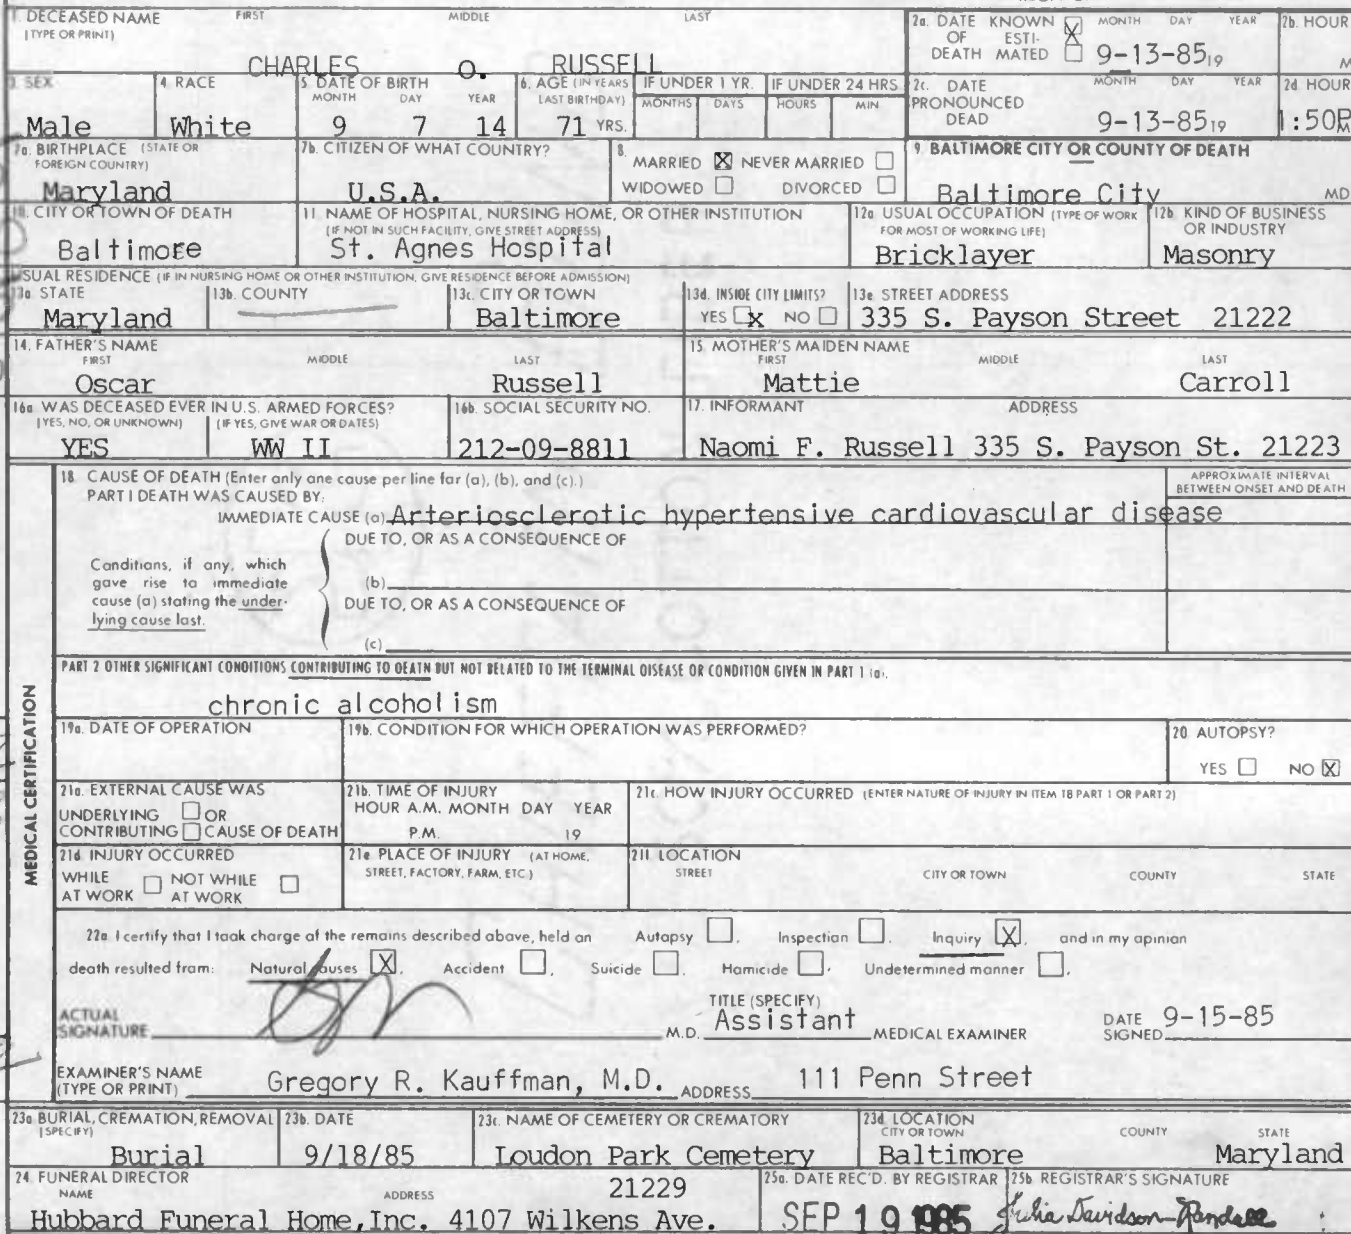 1. DECEASED NAME FIRST MIDDLE LAST
(TYPE OR PRINT)
CHARLES O. RUSSELL
2a. DATE KNOWN ☒ MONTH DAY YEAR
OF ESTI-
DEATH MATED ☐ 9-13-85 19
2b. HOUR
M
3. SEX
Male
4. RACE
White
5. DATE OF BIRTH
MONTH DAY YEAR
9 7 14
6. AGE (IN YEARS
LAST BIRTHDAY)
71 YRS.
IF UNDER 1 YR.
MONTHS DAYS
IF UNDER 24 HRS
HOURS MIN
2c. DATE MONTH DAY YEAR
PRONOUNCED
DEAD 9-13-85 19
2d HOUR
1:50P M
7a. BIRTHPLACE (STATE OR
FOREIGN COUNTRY)
Maryland
7b. CITIZEN OF WHAT COUNTRY?
U.S.A.
8. MARRIED ☒ NEVER MARRIED ☐
WIDOWED ☐ DIVORCED ☐
9. BALTIMORE CITY OR COUNTY OF DEATH
Baltimore City MD
10. CITY OR TOWN OF DEATH
Baltimore
11. NAME OF HOSPITAL, NURSING HOME, OR OTHER INSTITUTION
(IF NOT IN SUCH FACILITY, GIVE STREET ADDRESS)
St. Agnes Hospital
12a USUAL OCCUPATION (TYPE OF WORK
FOR MOST OF WORKING LIFE)
Bricklayer
12b. KIND OF BUSINESS
OR INDUSTRY
Masonry
USUAL RESIDENCE (IF IN NURSING HOME OR OTHER INSTITUTION, GIVE RESIDENCE BEFORE ADMISSION)
13a STATE
Maryland
13b. COUNTY
13c. CITY OR TOWN
Baltimore
13d. INSIDE CITY LIMITS?
YES ☒ NO ☐
13e STREET ADDRESS
335 S. Payson Street 21222
14. FATHER'S NAME
FIRST MIDDLE LAST
Oscar Russell
15. MOTHER'S MAIDEN NAME
FIRST MIDDLE LAST
Mattie Carroll
16a WAS DECEASED EVER IN U.S. ARMED FORCES?
(YES, NO, OR UNKNOWN) (IF YES, GIVE WAR OR DATES)
YES WW II
16b. SOCIAL SECURITY NO.
212-09-8811
17. INFORMANT ADDRESS
Naomi F. Russell 335 S. Payson St. 21223
MEDICAL CERTIFICATION
18 CAUSE OF DEATH (Enter only one cause per line for (a), (b), and (c).)
PART I DEATH WAS CAUSED BY:
APPROXIMATE INTERVAL
BETWEEN ONSET AND DEATH
IMMEDIATE CAUSE (a) Arteriosclerotic hypertensive cardiovascular disease
DUE TO, OR AS A CONSEQUENCE OF
Conditions, if any, which
gave rise to immediate
cause (a) stating the under-
lying cause last.
(b)
DUE TO, OR AS A CONSEQUENCE OF
(c)
PART 2 OTHER SIGNIFICANT CONDITIONS CONTRIBUTING TO DEATH BUT NOT RELATED TO THE TERMINAL DISEASE OR CONDITION GIVEN IN PART 1 (a).
chronic alcoholism
19a. DATE OF OPERATION
19b. CONDITION FOR WHICH OPERATION WAS PERFORMED?
20. AUTOPSY?
YES ☐ NO ☒
21a. EXTERNAL CAUSE WAS
UNDERLYING ☐ OR
CONTRIBUTING ☐ CAUSE OF DEATH
21b. TIME OF INJURY
HOUR A.M. MONTH DAY YEAR
P.M. 19
21c HOW INJURY OCCURRED (ENTER NATURE OF INJURY IN ITEM 18 PART 1 OR PART 2)
21d INJURY OCCURRED
WHILE ☐ NOT WHILE ☐
AT WORK AT WORK
21e PLACE OF INJURY (AT HOME,
STREET, FACTORY, FARM, ETC.)
21f. LOCATION
STREET CITY OR TOWN COUNTY STATE
22a I certify that I took charge of the remains described above, held an Autopsy ☐, Inspection ☐, Inquiry ☒, and in my opinion
death resulted from: Natural causes ☒, Accident ☐, Suicide ☐, Homicide ☐, Undetermined manner ☐.
ACTUAL
SIGNATURE M.D.
TITLE (SPECIFY)
Assistant MEDICAL EXAMINER
DATE
SIGNED 9-15-85
EXAMINER'S NAME
(TYPE OR PRINT) Gregory R. Kauffman, M.D. ADDRESS 111 Penn Street
23a BURIAL, CREMATION, REMOVAL
(SPECIFY)
Burial
23b. DATE
9/18/85
23c. NAME OF CEMETERY OR CREMATORY
Loudon Park Cemetery
23d. LOCATION
CITY OR TOWN COUNTY STATE
Baltimore Maryland
24. FUNERAL DIRECTOR
NAME ADDRESS 21229
Hubbard Funeral Home, Inc. 4107 Wilkens Ave.
25a. DATE REC'D. BY REGISTRAR
SEP 19 1985
25b. REGISTRAR'S SIGNATURE
Julia Davidson-Randall